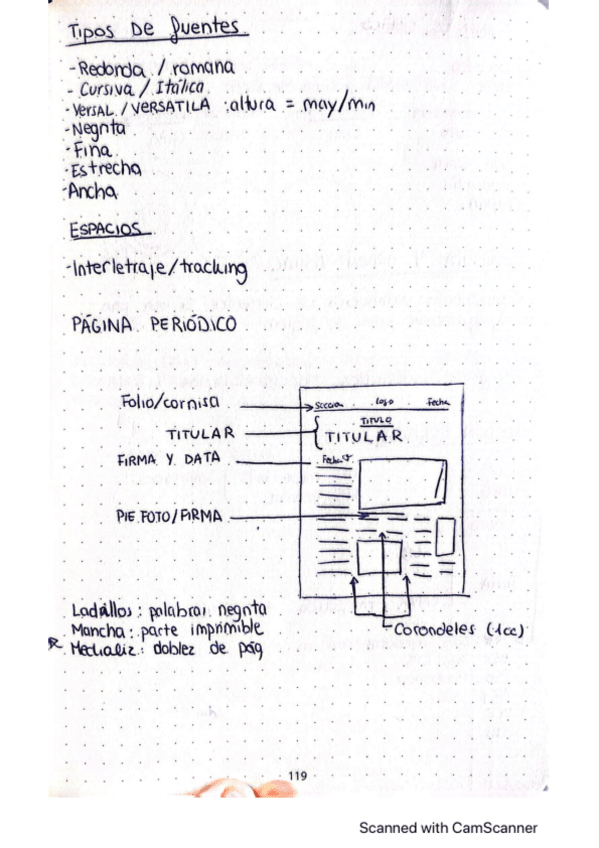 TIPOS DE fUENTES
- Redonda / romana
- Cursiva / Itálica
- VERSAL / VERSATILA : altura = may/min
- Negrita
- Fina
- Estrecha
- Ancha
ESPACIOS
- Interletraje/tracking
PÁGINA PERIÓDICO
Folio/cornisa
Sección logo Fecha
TITULO
TITULAR
TITULAR
FIRMA Y DATA
Fecha
PIE FOTO/FIRMA
Ladrillos : palabras negrita
Mancha : parte imprimible
Medializ : doblez de pág
Corondeles (1cc)
119
Scanned with CamScanner